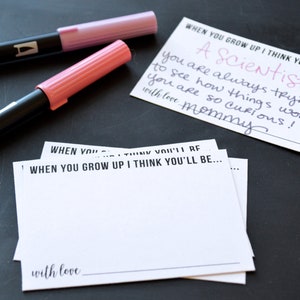 WHEN YOU GROW UP I THINK YO
A SCIENTIS
you are always try
to see how things wo
you are so curious!
with love, mommy
WHEN YOU GROW UP I THINK YOU'LL BE...
WHEN YOU GROW UP I THINK YOU'LL BE...
with love